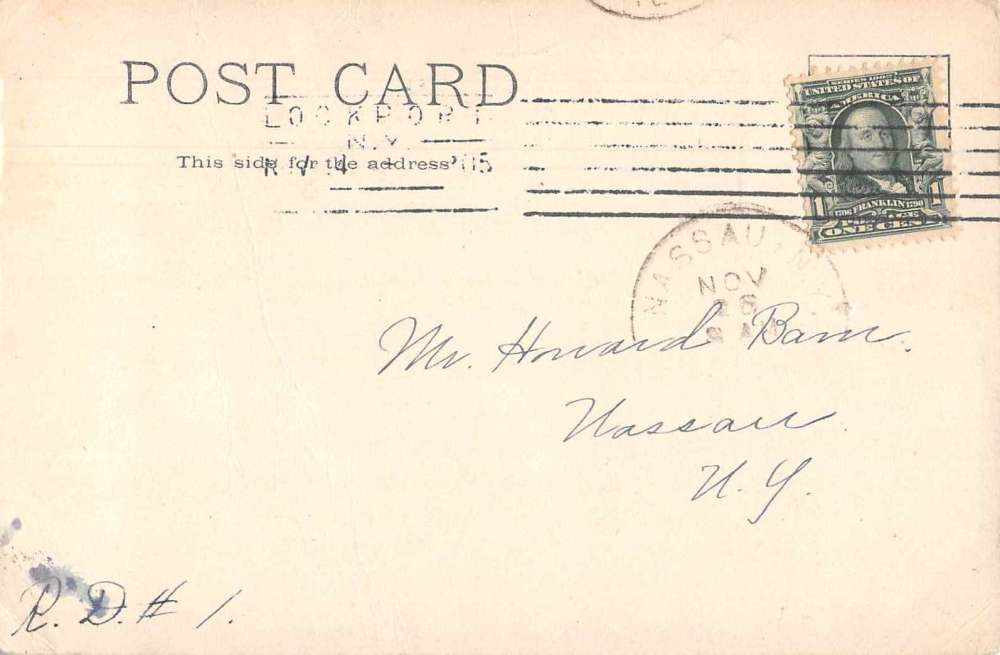 POST CARD
LOCKPORT
N.Y.
This side for the address
SERIES 1902
UNITED STATES OF
AMERICA
1 1
1706 FRANKLIN 1790
ONE CENT
NASSAU, N.Y.
NOV
26
Mr. Howard Barn.
Nassau
N. Y.
R. D. # 1.